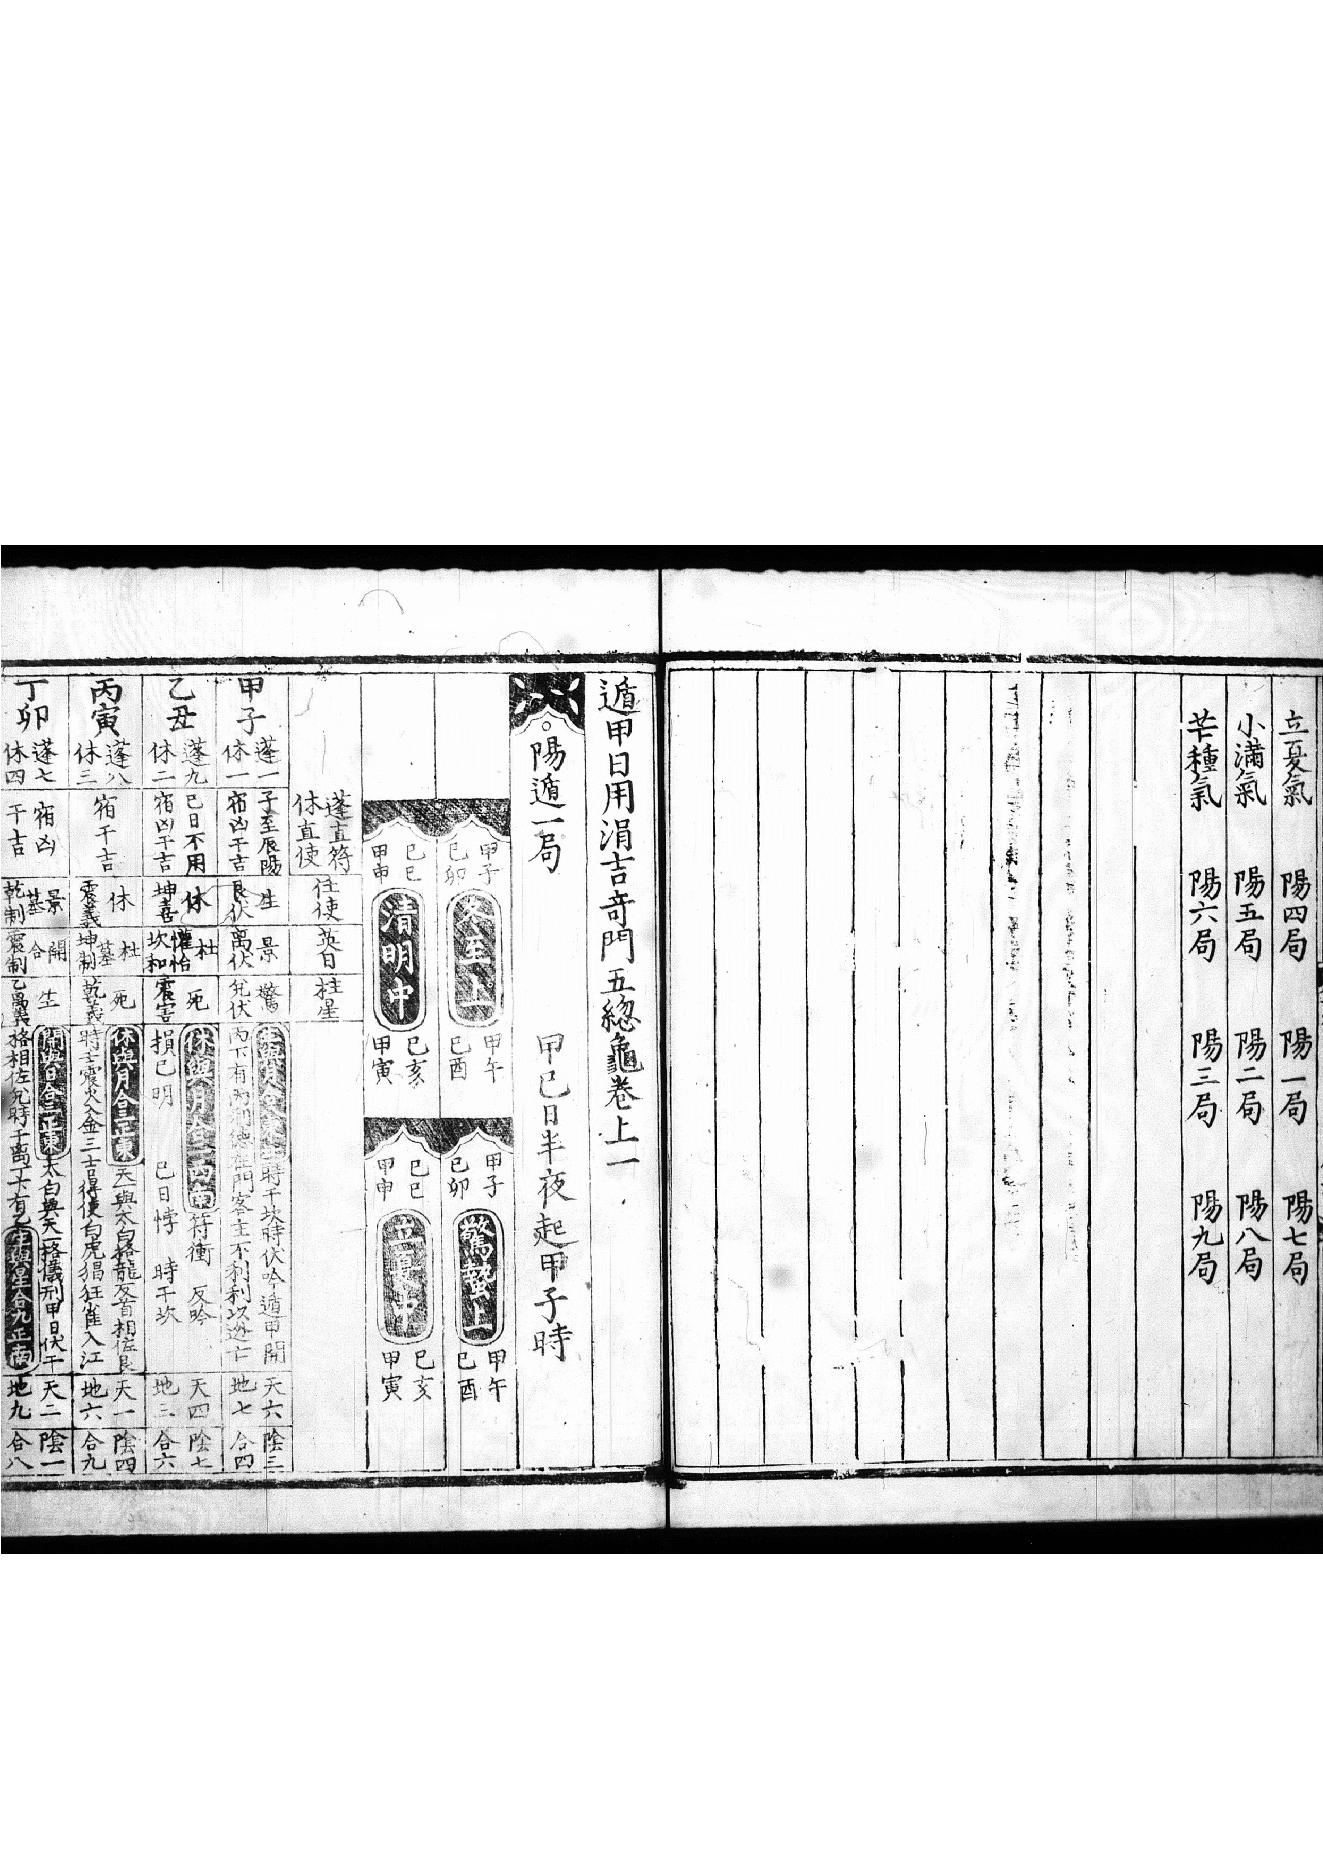 立夏氣　陽四局　陽一局　陽七局
小滿氣　陽五局　陽二局　陽八局
芒種氣　陽六局　陽三局　陽九局
遁甲日用涓吉奇門五總龜卷上一
陽遁一局　甲己日半夜起甲子時
甲子　己卯　冬至上　甲午　己酉
甲子　己卯　驚蟄上　甲午　己酉
己巳　甲申　清明中　己亥　甲寅
己巳　甲申　立夏中　己亥　甲寅
蓬直符　休直使　任使　英日　柱星
甲子
蓬一　休一
子至辰陽　宿凶干吉
生　艮伏
景　离伏
驚　兌伏
時干坎時伏吟遁甲開
門客主不利利以逃亡
天六　地七
陰三　合四
乙丑
蓬九　休二
己日不用　宿凶干吉
休　坤害
杜　懽怡　坎和
死　震害
休與月合三西南
符衝　反吟
損己明　己日悖　時干坎
天四　地三
陰七　合六
丙寅
蓬八　休三
宿干吉
休　震義
杜　墓　坤制
死　乾義
休與月合三正東
天與太白格龍反首相佐艮
時干震火入金三吉得使白虎猖狂雀入江
天一　地六
陰四　合九
丁卯
蓬七　休四
宿凶　干吉
景　墓　乾制
開　合　震制
生
開與日合三正東
太白與天一格儀刑甲日伏干
格相佐兌時干离丁下有乙
生與星合九正南
天二　地九
陰一　合八